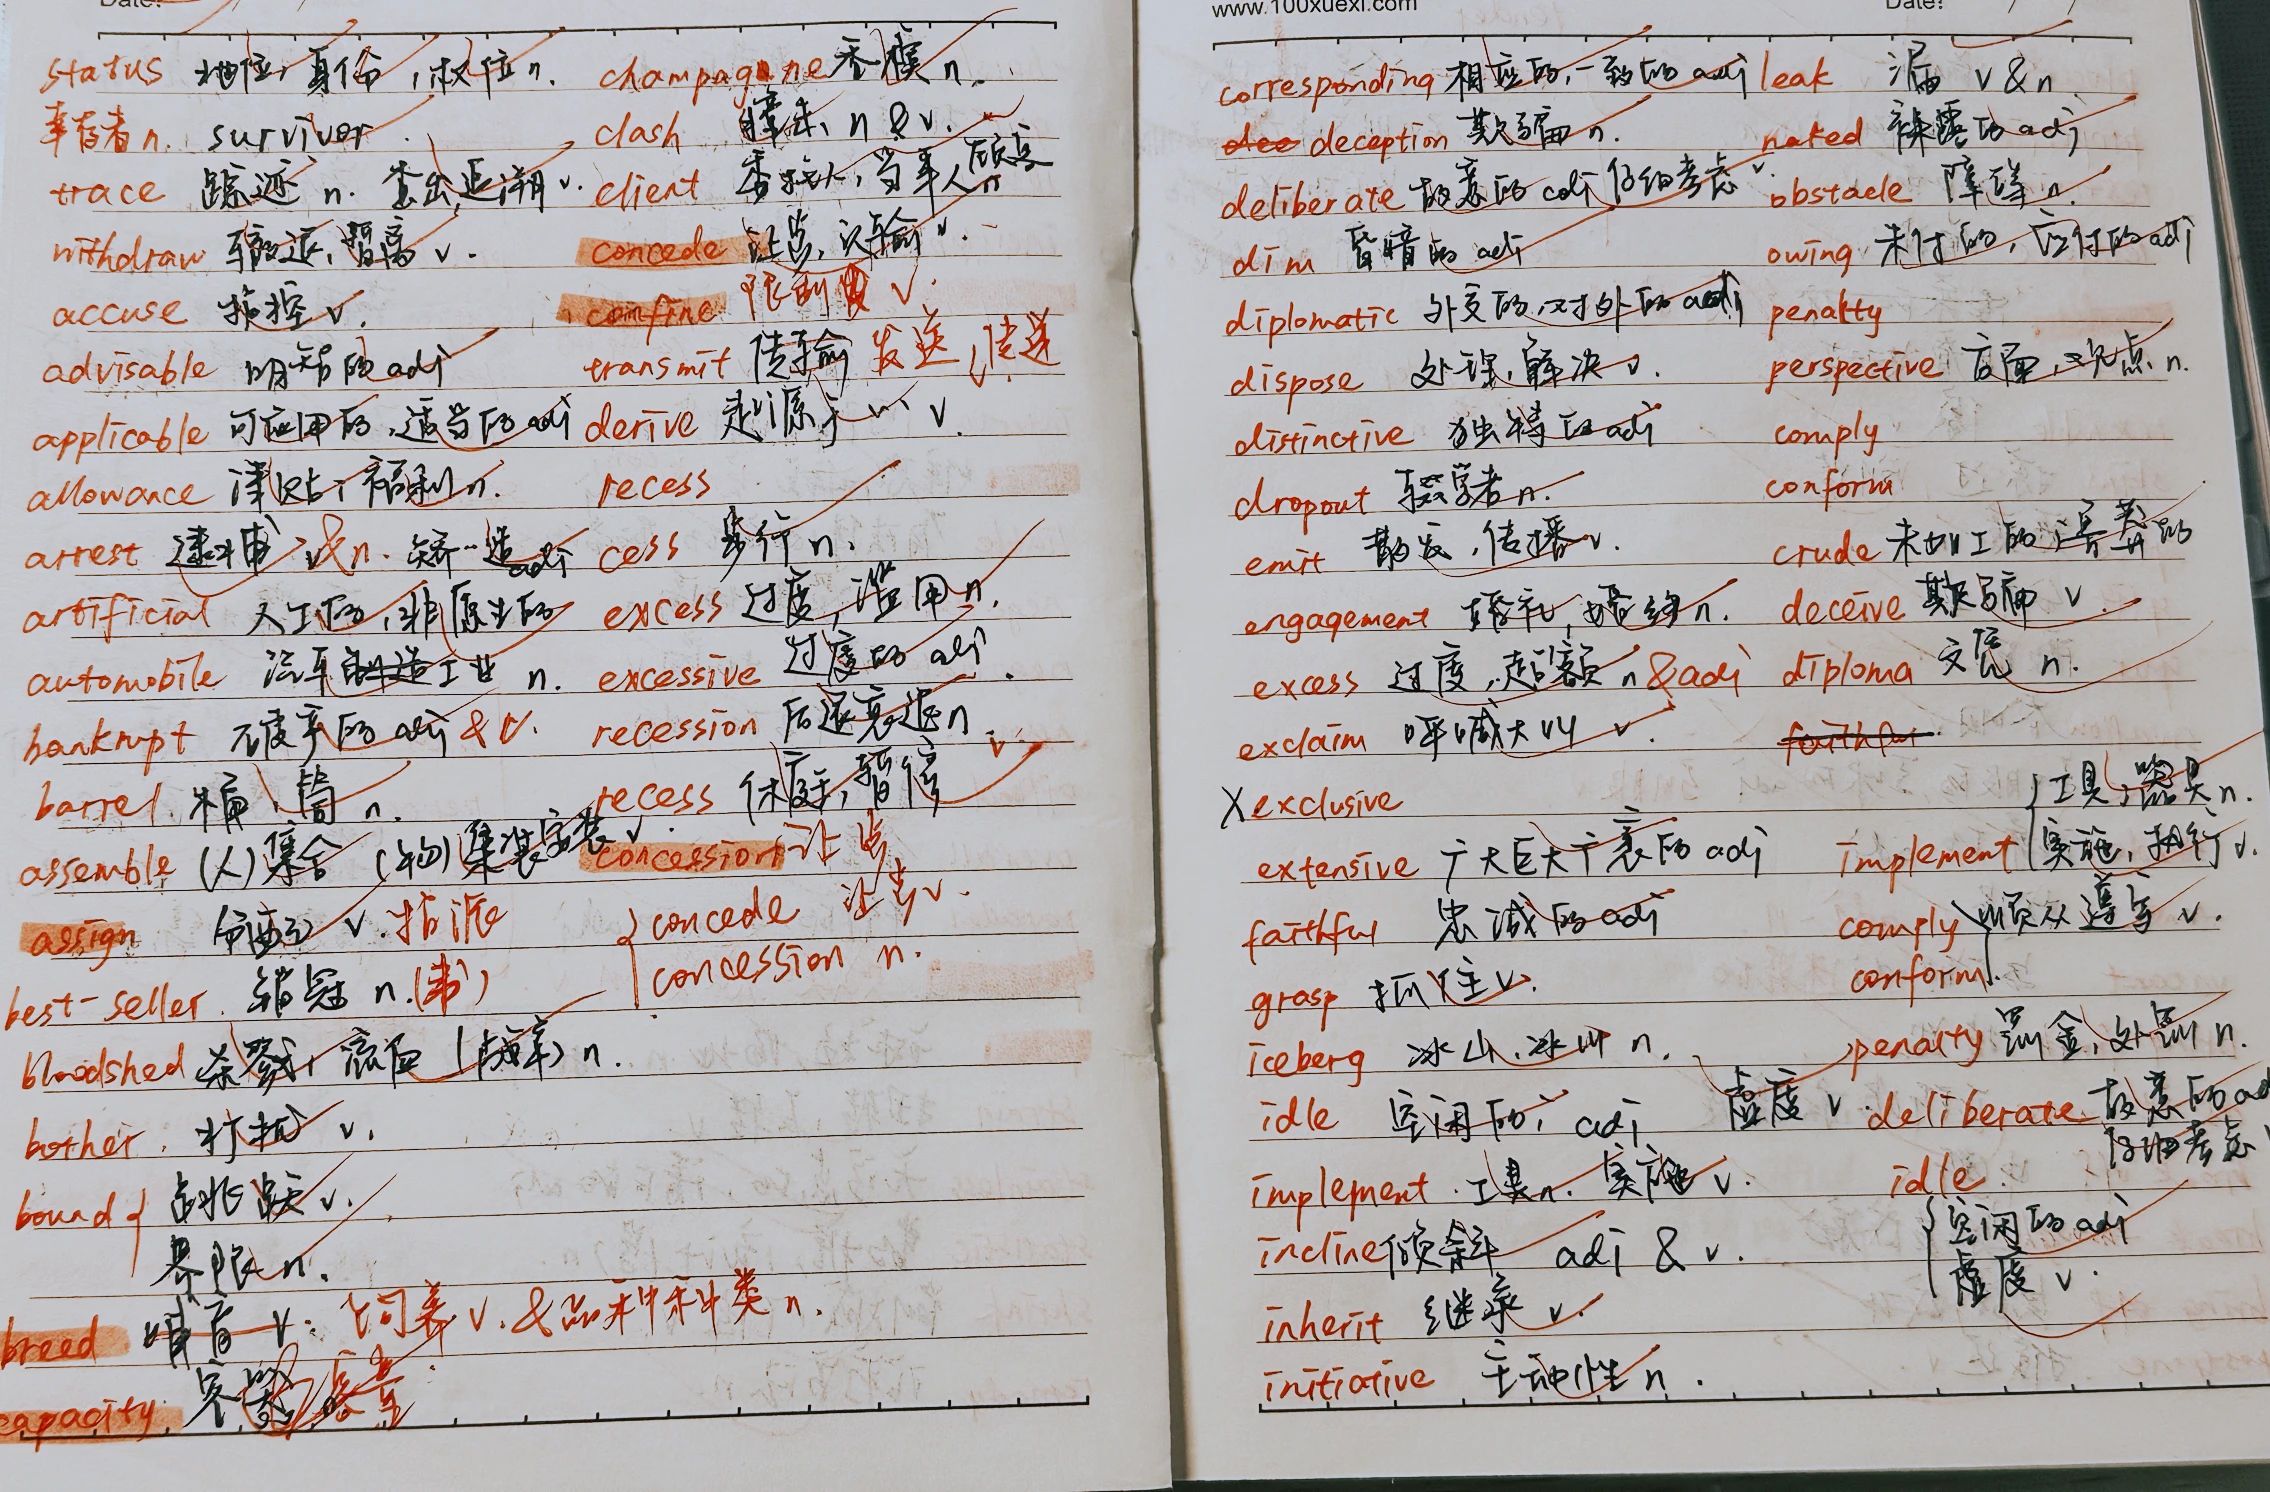 Date:
status 地位,身份,权位n.
幸存者n. survivor
trace 踪迹 n. 查出,追溯 v.
withdraw 撤退,暂离 v.
accuse 指控 v.
advisable 明智的adj
applicable 可应用的,适当的adj
allowance 津贴,福利n.
arrest 逮捕 v&n.
artificial 人工的,非原生的
automobile 汽车工业 n.
bankrupt adj & v.
barrel. 桶,筒 n.
assemble (人)集合 (物)集装安装 v.
assign 分配 v. 指派
best-seller. 销冠 n.(书)
bloodshed 杀戮,流血(战争) n.
bother. 打扰 v.
bound { 跳跃 v.
界限 n.
breed 哺育 v. 饲养 v. & 品种种类 n.
capacity. 容量
champagne 香槟 n.
clash 撞击 n & v.
client 委托人,当事人 顾客 n
concede 让步,认输 v.
confine 限制 v.
transmit 传输 发送,传送
derive 起源于… v.
recess
cess 步行 n.
excess 过度,滥用 n.
excessive 过度的 adj.
recession 后退衰退n.
recess 休庭,暂停 v.
concession 让步
concede 让步 v.
concession n.
www.100xuexi.com Date:
corresponding 相应的,一致的adj
deception 欺骗 n.
deliberate 故意的 adj 仔细考虑 v.
dim 昏暗的 adj
diplomatic 外交的,对外的 adj
dispose 处理,解决 v.
distinctive 独特的adj
dropout 辍学者 n.
emit 散发,传播 v.
engagement 婚礼,婚约 n.
excess 过度,超额 n &adj
exclaim 呼喊大叫 v.
X exclusive
extensive 广大巨大广袤的 adj
faithful 忠诚的adj
grasp 抓住 v.
iceberg 冰山,冰川 n.
idle 空闲的, adj 虚度 v.
implement. 工具n. 实施 v.
incline 倾斜 adj & v.
inherit 继承 v.
initiative 主动性 n.
leak 漏 v & n.
naked 裸露的 adj
obstacle 障碍 n.
owing 未付的,应付的adj
penalty
perspective 方面,观点 n.
comply
conform
crude 未加工的,
deceive 欺骗 v.
diploma 文凭 n.
faithful
{ 工具,器具n.
implement 实施,执行 v.
comply } 顺从遵守 v.
conform
penalty 罚金,处罚 n.
deliberate 故意的ad
仔细考虑
idle.
{ 空闲的adj
虚度 v.